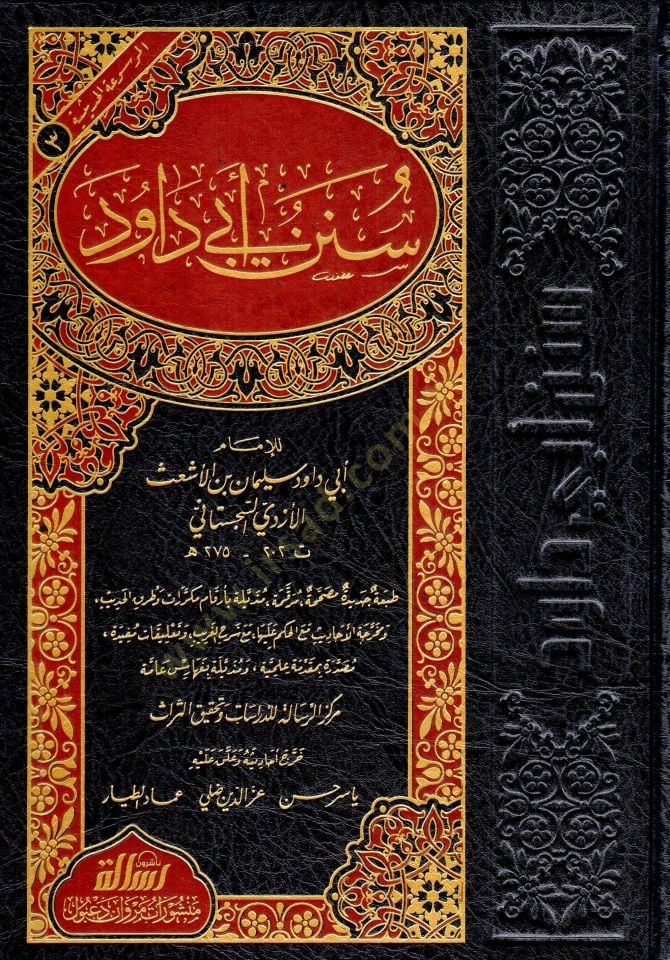 الموسوعة الحديثية
٣
سُنَنُ أَبِي دَاوُدَ
للإمام
أبي داود سليمان بن الأشعث
الأزدي السجستاني
ت ٢٠٢ - ٢٧٥ هـ
طبعة جديدة مصححة، مرقمة، مذيلة بأرقام مكررات وطرق الحديث،
ومخرجة الأحاديث مع الحكم عليها، مع شرح الغريب، وتعليقات مفيدة،
مصدرة بمقدمة علمية، ومذيلة بفهارس عامة
مركز الرسالة للدراسات وتحقيق التراث
خرج أحاديثه وعلق عليه
ياسر حسن عز الدين ضلي عماد الطيار
رسالة ناشرون
منشورات مروان دعبول
سنن أبي داود
www.irsad.com